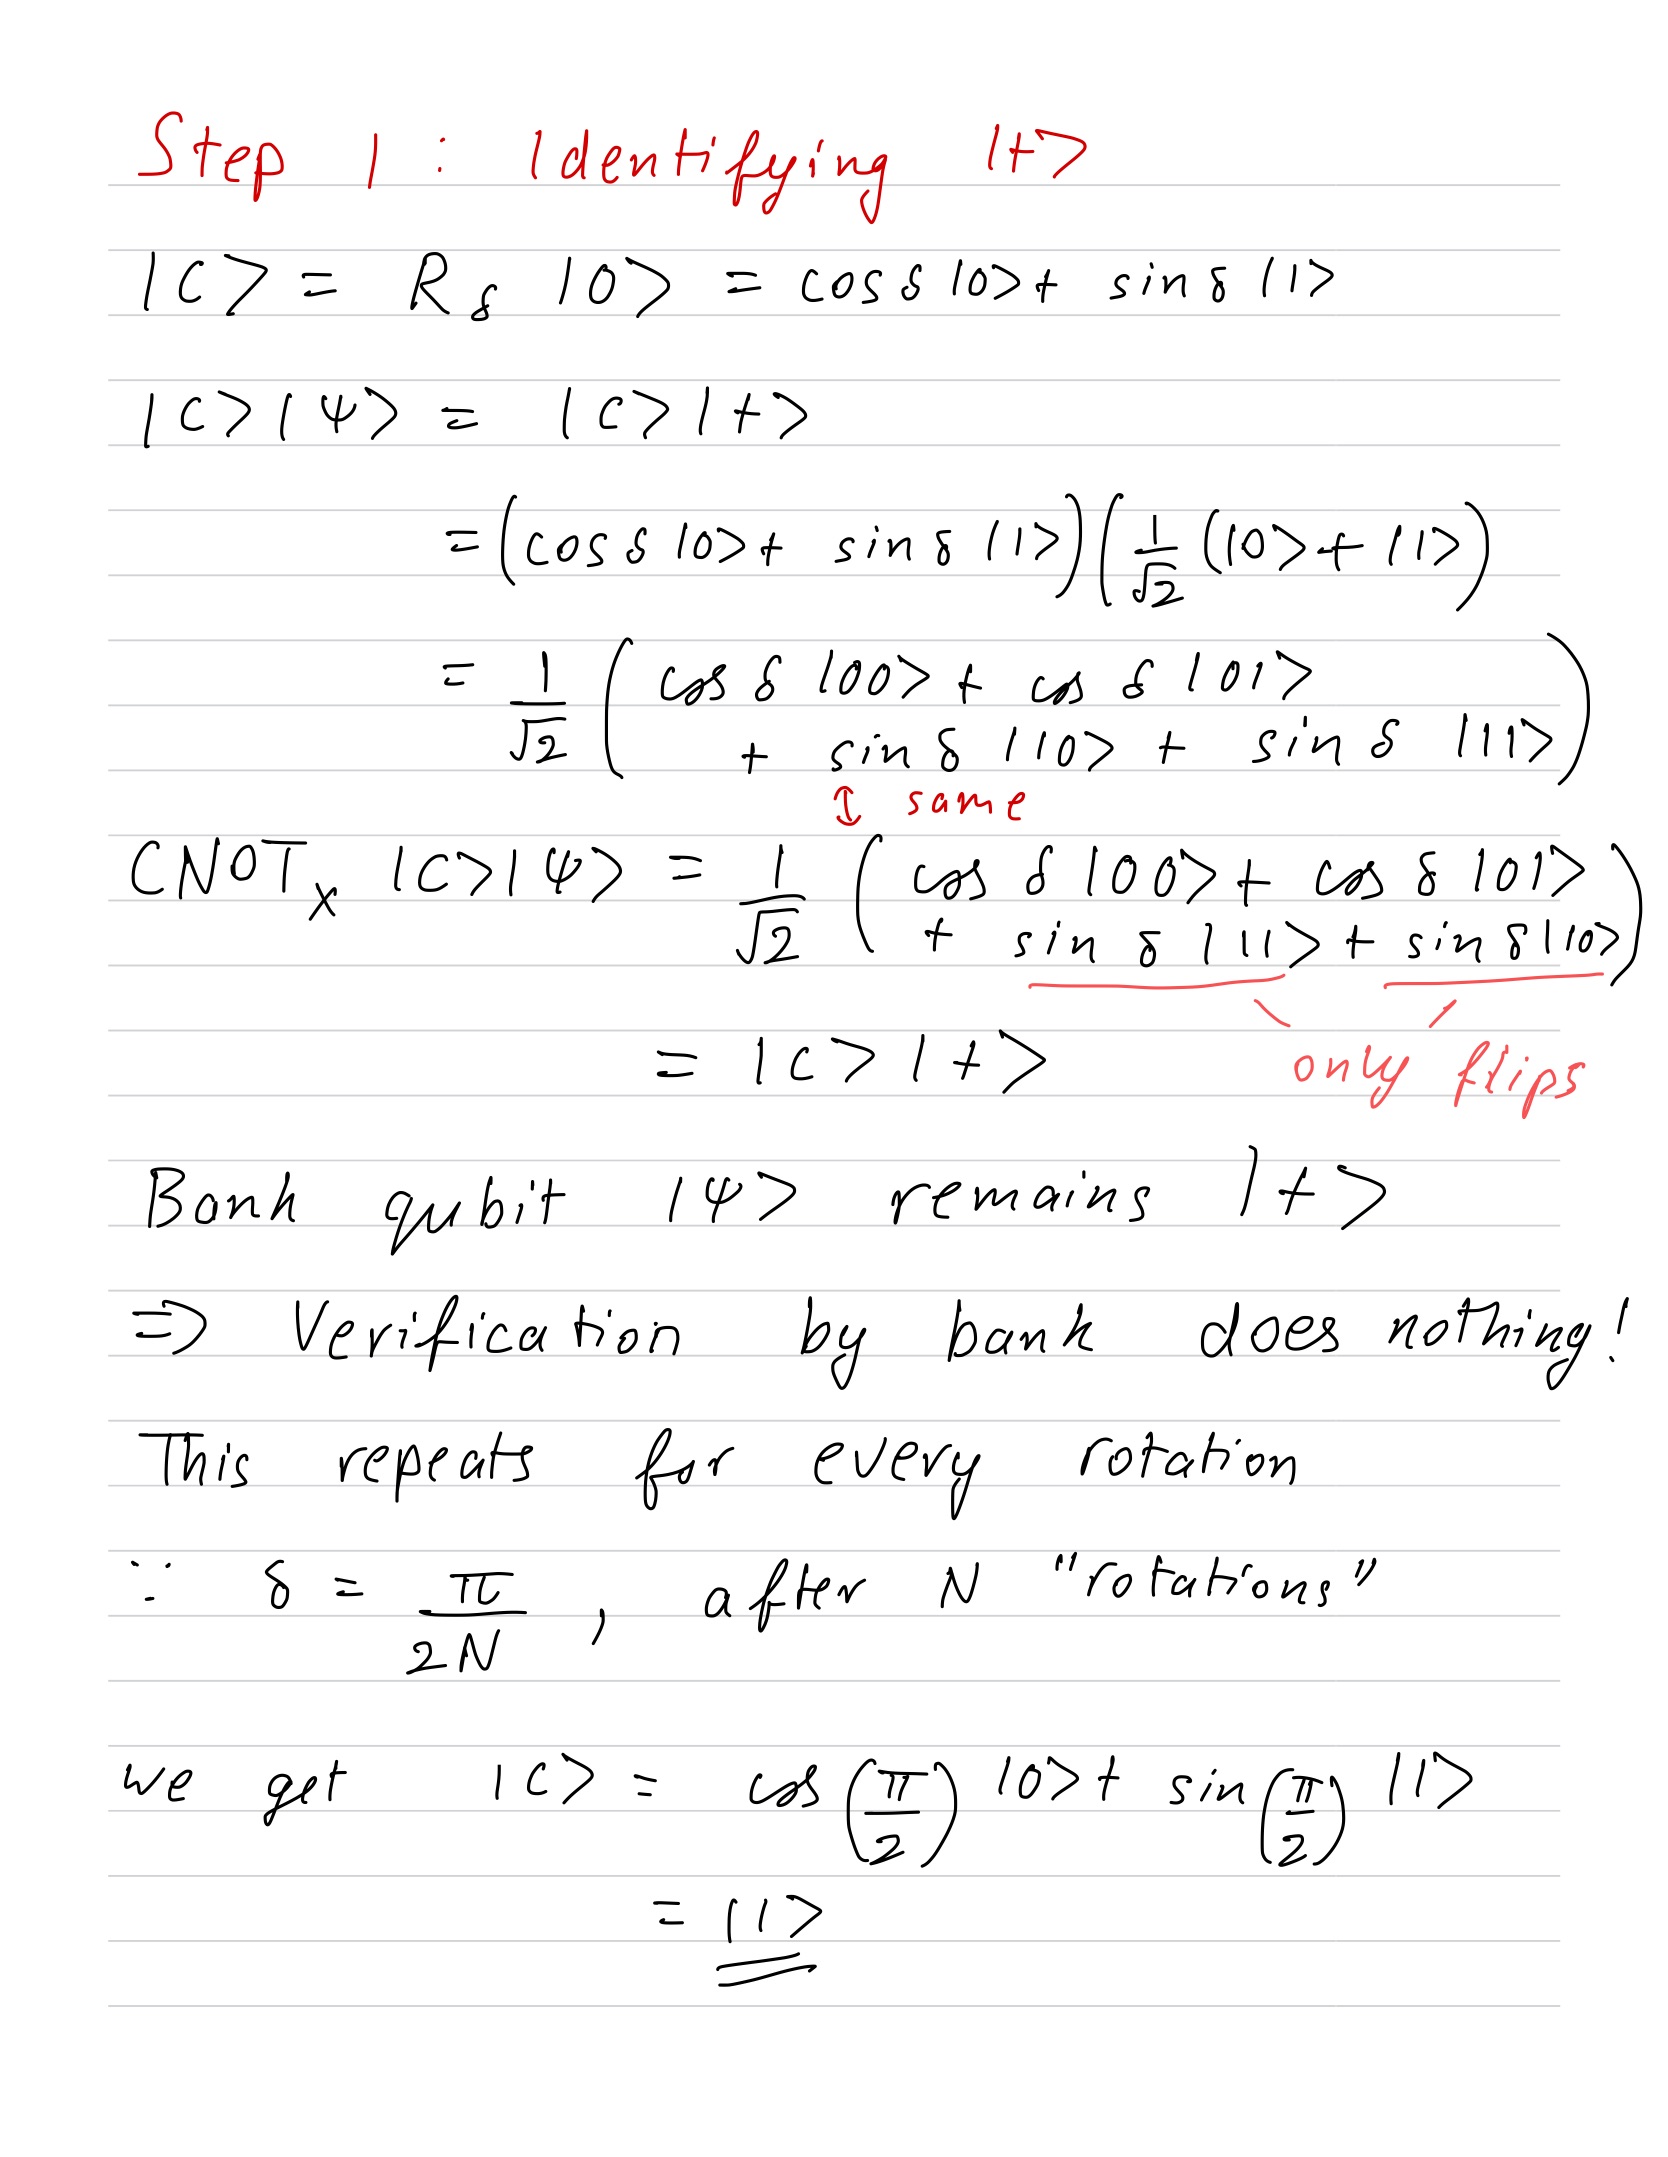 Step 1 : Identifying |+>
|C> = R_δ |0> = cos δ |0> + sin δ |1>
|C>|ψ> = |C>|+>
= (cos δ |0> + sin δ |1>) (1/√2 (|0> + |1>)
= 1/√2 ( cos δ |00> + cos δ |01>
+ sin δ |10> + sin δ |11> )
↕ same
CNOT_x |C>|ψ> = 1/√2 ( cos δ |00> + cos δ |01>
+ sin δ |11> + sin δ |10> )
= |C>|+>
only flips
Bank qubit |ψ> remains |+>
⇒ Verification by bank does nothing!
This repeats for every rotation
∵ δ = π/2N , after N "rotations"
we get |C> = cos(π/2) |0> + sin(π/2) |1>
= |1>